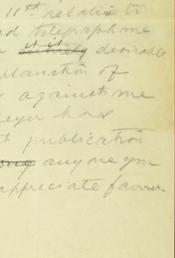 11th relative to
telegraph me
if it desirable
explanation of
against me
has
publication
anyone you
appreciate favour